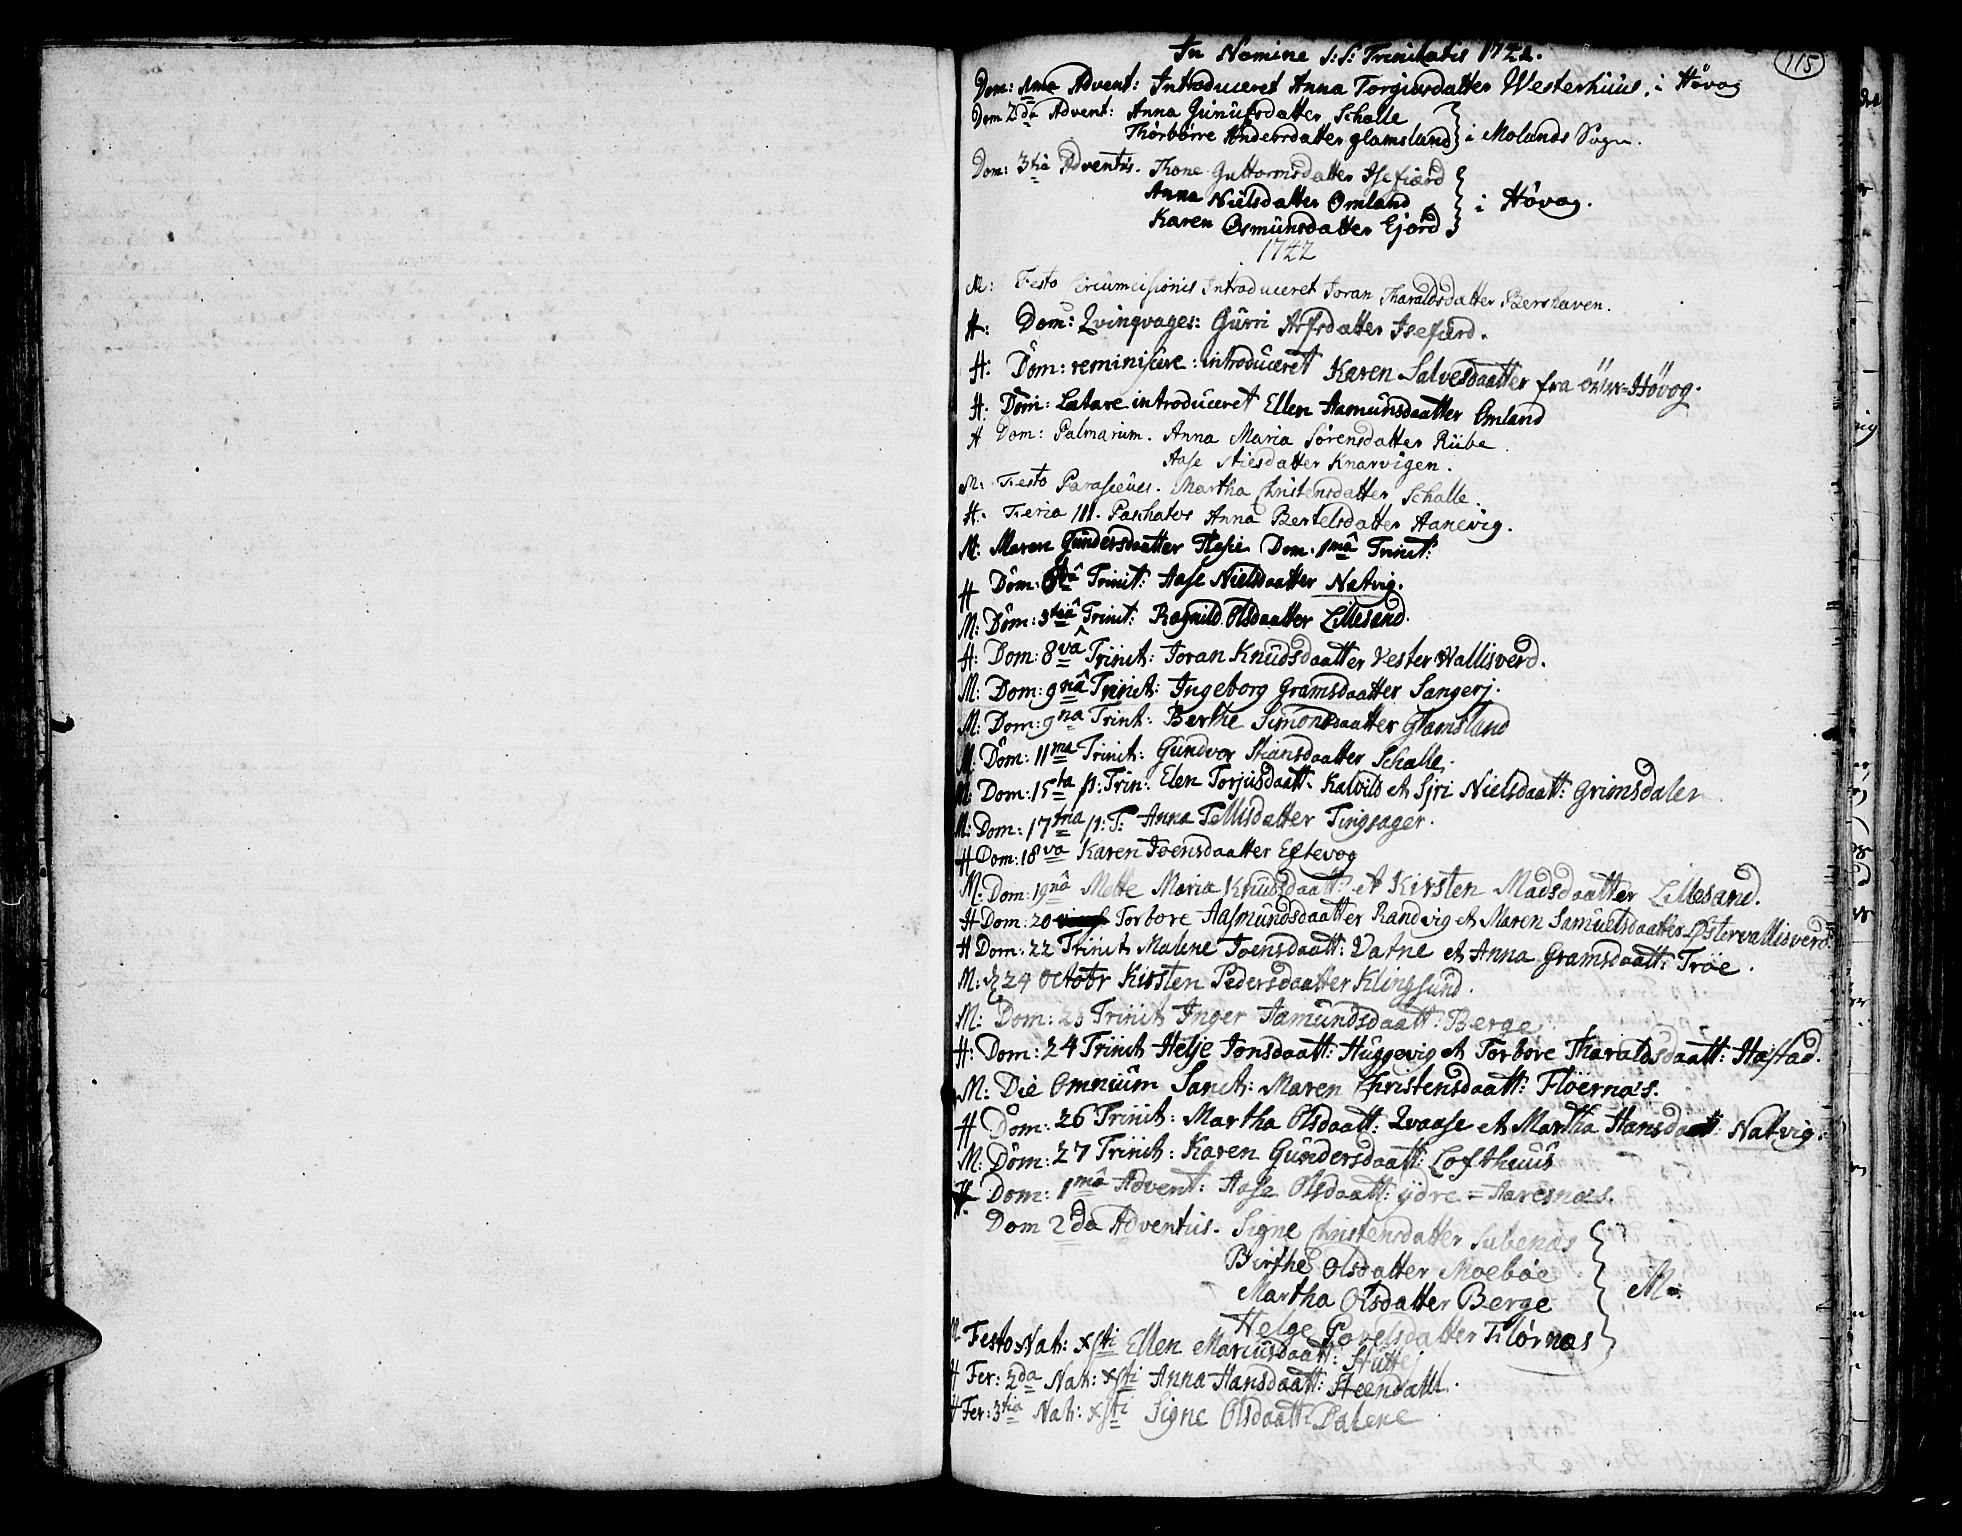 In Nomine S: S: Trinitatis 1742.
115
Dom: 1ma Advent: Introduceret Anna Torgiusdatter Westerhuus, i Høvog
Dom 2da Advent: Anna Gunulfsdatter Schalle
Thorbørre Andersdatter glamsland } i Molands Sogn.
Dom: 3tia Adventus. Thone Guttormsdatter Isefiærd
Anna Nielsdatter Omland } i Høvog.
Karen Osmunsdatter Ejørd
1742
M: Festo Circumcisionis Introduceret Joran Tharaldsdatter Bershaven.
H: Dom: Qvinqvages: Gurri Arfsdatter Isefærd.
H: Dom: reminiscere: introduceret Karen Salvesdaatter fra Høvog.
H: Dom: Lætare introduceret Ellen Aamunsdaatter Omland
H Dom: Palmarum. Anna Maria Sørensdatter Rübe
Aase Stiesdatter Knarvigen.
M: Festo Parasceües. Martha Christensdatter Schalle.
H: Feria III. Paschatos Anna Bertelsdatter Aanevig.
M: Maren Gundersdaatter Dom. 1mâ Trinit:
H Dom: Trinit: Aase Nielsdaatter Natvig.
M: Dom: 3tiâ Trinit: Ragnild Olsdaatter Lillesand.
H: Dom: 8vâ Trinit: Joran Knudsdaatter Vester Wallisverd.
M: Dom: 9nâ Trinit: Ingeborg Gramsdaatter Sangerj.
M: Dom: 9na Trinit: Berthe Simonsdaatter Glamsland
M: Dom: 11ma Trinit: Gundvor Stiansdaatter Schalle.
M: Dom: 15ta p: Trin: Elen Torjusdaatt: Kalvild et Sjri Nielsdaatt: Grimsdalen
M: Dom: 17tma p: T: Anna Tellisdatter Tingsager.
H Dom: 18va Karen Joensdaatter Eftevog
M: Dom: 19nâ Mette Maria Knudsdaatt: et Kirsten Madsdaatter Lillesand.
H Dom: 20 Torbore Aasmundsdaatter Randvig et Maren Samuelsdaatter Østervallisverd
H Dom: 22 Trinit Malene Joensdaatt: Vatne et Anna Gramsdaatt: Trøe.
M: 24 Octobr Kirsten Pedersdaatter Klingsund.
M: Dom: 23 Trinit Inger Aamundsdaatt: Berge
H: Dom: 24 Trinit Helje Jonsdaatt: Huggevig et Torbore Tharaldsdaatt: Hæstad.
M: Die Omnium Sanct: Maren Christensdaatt: Fløernæs.
H Dom: 26 Trinit: Martha Olsdaatt: Qvaase et Martha Hansdaatt: Natvig:
M: Dom: 27 Trinit: Karen Gundersdaatt: Lofthuus
H Dom: 1mâ Advent: Aase Olsdaatt: ydre = Aaresnæs.
Dom 2da Adventus. Signe Christensdatter Lubenæs
Birthe Olsdatter Moebøe
Martha Olsdatter Berge } M:
Helge Govelsdatter Flørnæs
M Festo Nat: Xsti Ellen Mariusdaatt: Hüttej
H Fer: 2da Nat: Xsti Anna Hansdaatt: Steendahl.
H Fer: 3tia Nat: Xsti Signe Olsdaatt: Dalene